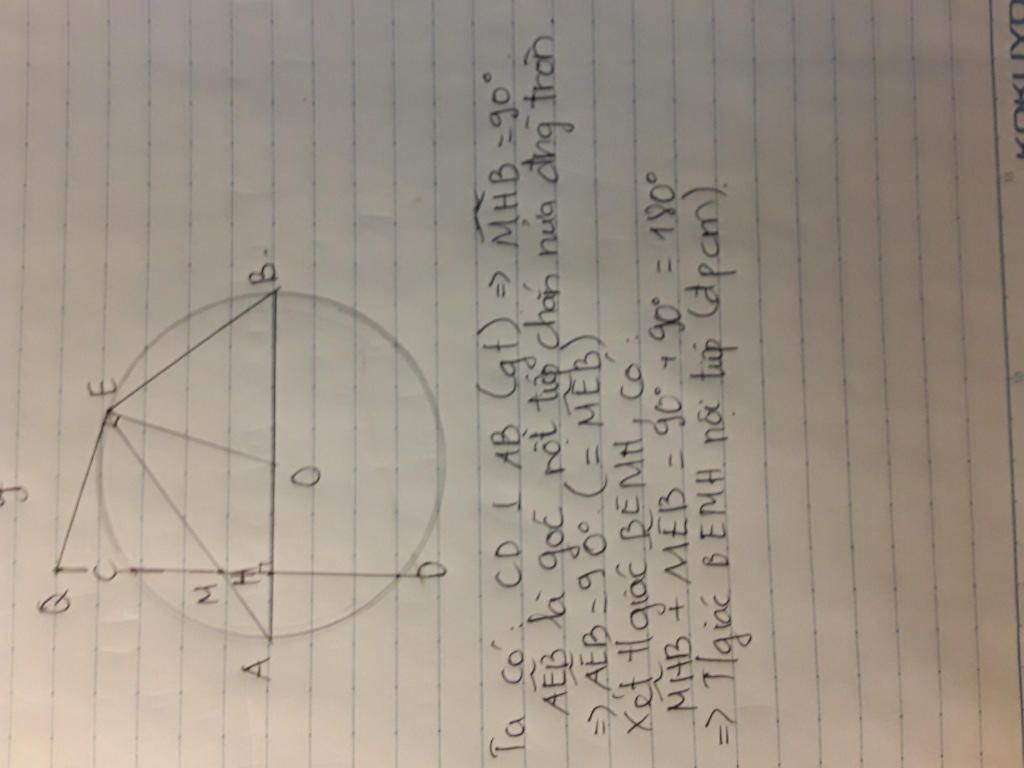 Q
C
E
M
H
A
O
B.
D
Ta có: CD ⊥ AB (gt) => M̂HB = 90°.
AÊB là góc nột tiếp chắn nửa đường tròn.
=> AÊB = 90° (= MÊB)
Xét tlgiác BEMH, có:
MHB + MEB = 90° + 90° = 180°
=> Tlgiác BEMH nội tiếp (đpcm).
KOKUYO